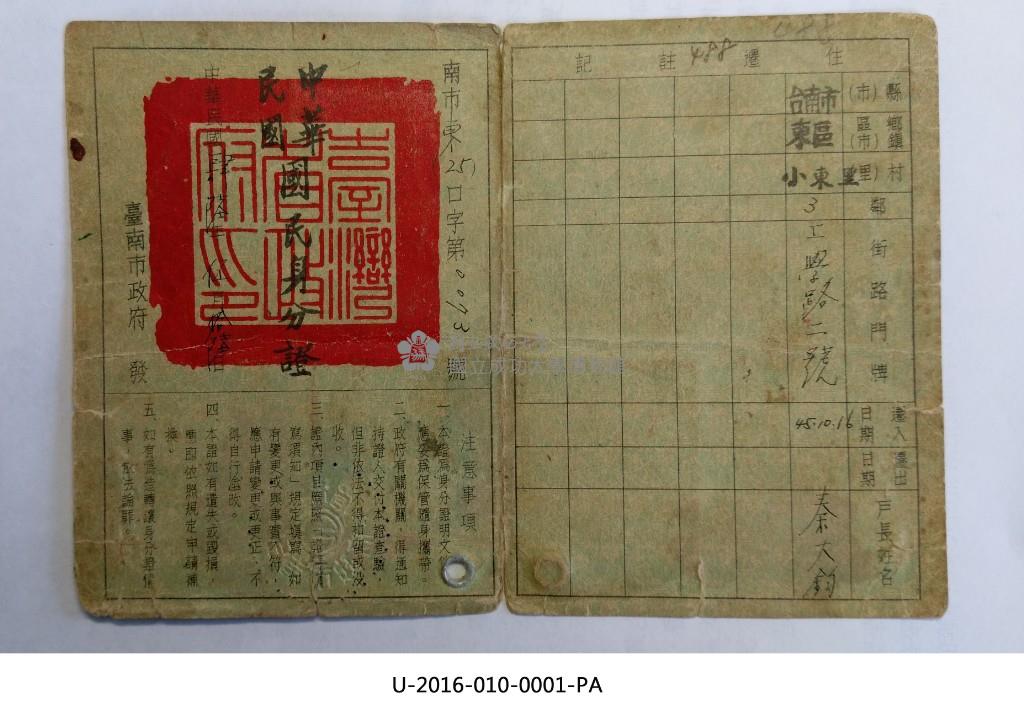 住遷註記
488
縣(市)
台南市
鄉鎮區(市)
東區
村(里)
小東里
鄰
3
街路門牌
工學路二號
遷入日期
45.10.16
遷出日期
戶長姓名
秦大鈞
南市東(25)口字第00093號
中華民國國民身分證
臺灣省政府印
中華民國
臺南市政府 發
注意事項
一、本證為身分證明文
應妥為保管隨身攜帶。
二、政府有關機關,得通知
持證人交付本證查驗,
但非依法不得扣留或沒
收。
三、證內項目應照
寫須知」規定填寫,如
有變更或與事實不符,
應申請變更或更正,不
得自行塗改。
四、本證如有遺失或毀損,
應即依照規定申請補
換。
五、如有偽造轉讓身分證情
事,依法論罪。
國立成功大學博物館
U-2016-010-0001-PA